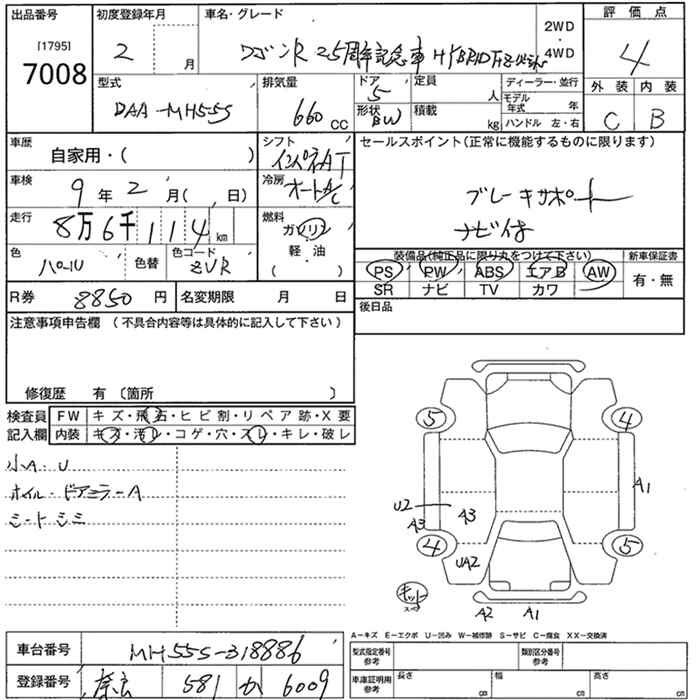 出品番号 初度登録年月 車名・グレード 評価点
[1795]
7008
2 月
ワゴンR 25周年記念車 HYBRID FZ
2WD
・
4WD
4
型式 排気量 ドア 定員 ディーラー・並行 外装 内装
DAA-MH55S 660 CC 5 人 モデル年式 年
形状 BW 積載 kg ハンドル 左・右 C B
車歴 自家用・( ) シフト インパネAT セールスポイント(正常に機能するものに限ります)
車検 9年 2月( 日) 冷房 オートA/C ブレーキサポート
走行 8万6千114km 燃料 ガソリン ナビ付
・
軽・油
・
( )
色 パール 色替 色コード ZVR
装備品(純正品に限り丸をつけて下さい) 新車保証書
PS PW ABS エアB AW 有・無
SR ナビ TV カワ
R券 8850円 名変期限 月 日 後日品
注意事項申告欄 (不具合内容等は具体的に記入して下さい)
修復歴 有 〔箇所 〕
検査員 FW キズ・飛石・ヒビ割・リペア跡・X要
記入欄 内装 キズ・汚レ・コゲ・穴・スレ・キレ・破レ
小A.U
ホイル・ドアミラーA
シートシミ
5 4
A1
U2
A3 A3
4 5
UA2
キット
A2 A1
A-キズ E-エクボ U-凹み W-補修跡 S-サビ C-腐食 XX-交換済
車台番号 MH55S-318886 型式指定番号 参考 類別区分番号 参考
登録番号 581 か 6009 車庫証明用 参考 長さ cm 幅 cm 高さ cm